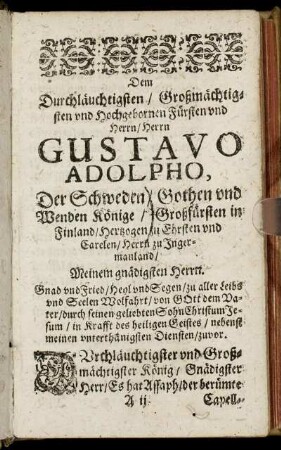 Dem
Durchläuchtigsten / Großmächtig-
sten vnd Hochgebornen Fürsten vnd
Herrn / Herrn
GUSTAVO
ADOLPHO,
Der Schweden / Gothen vnd
Wenden Könige / Großfürsten in
Finland / Hertzogen in Ehsten vnd
Carelen / Herrn zu Inger-
manland /
Meinem gnädigsten Herrn.
Gnad vnd Fried / Heyl vnd Segen / zu aller Leibs
vnd Seelen Wolfahrt / von GOtt dem Va-
ter / durch seinen geliebten Sohn Christum Je-
sum / in Krafft des heiligen Geistes / nebenst
meinen vnterthänigsten Diensten / zuvor.
DUrchläuchtigster vnd Groß-
mächtigster König / Gnädigster
Herr / Es hat Assaph / der berümte
A ij Capell-